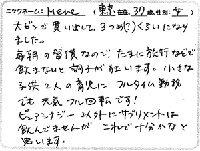 ニックネーム: Hene (東京都 39歳 女)
大ビンで買い出して、3つめ(?)くらいになり
ました。
毎朝の習慣なので、たまに旅行などで
飲まないと調子が狂います。小さな
子供2人の育児に フルタイム勤務
でも 元気 フル回転です!
ビューアンナジー 以外にサプリメントは
飲んでませんが これで十分かなと
思います。